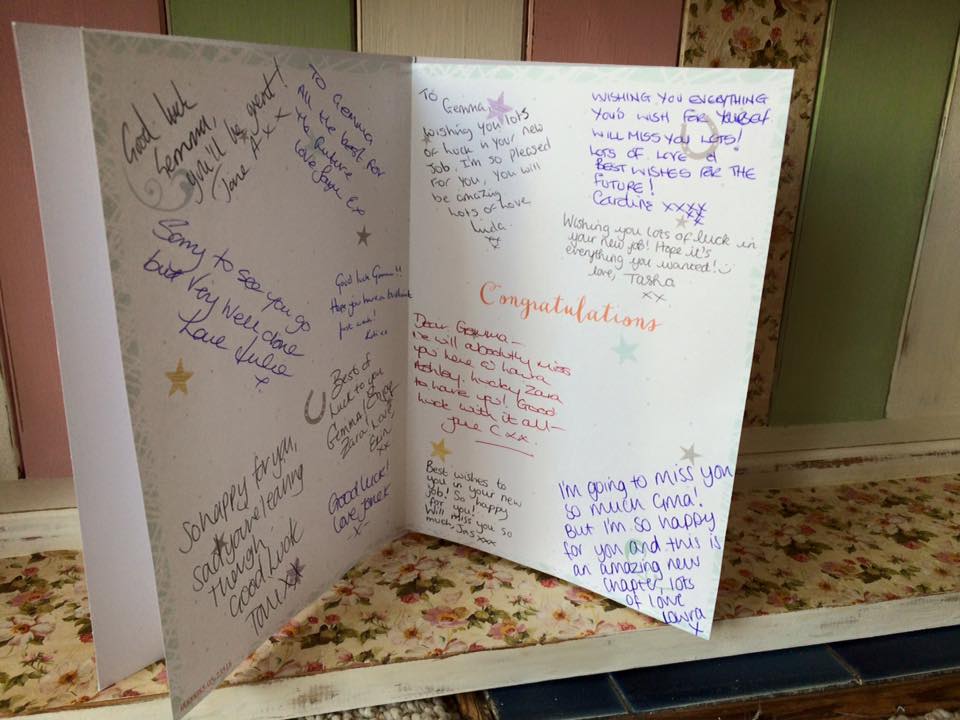 Good luck
Gemma,
you'll be great!
Jane A xxx
TO GEMMA
All the best for
the future
love
Sorry to see you go
but Very Well done
Love Julie
x
Good luck Gemma!!
Hope you have a brilliant
last week!
Best of
Luck to you
Gemma! Enjoy
Zara! Love,
Erin
xx
So happy for you,
sad you're leaving
though
Good Luck
Toni xx
Good luck!
Love Janet
x
To Gemma,
Wishing you lots
of luck in your new
Job. I'm so pleased
for you, you will
be amazing
Lots of love
Linda
xx
WISHING YOU EVERYTHING
YOU'D WISH FOR YOURSELF.
WILL MISS YOU LOTS!
LOTS OF LOVE &
BEST WISHES FOR THE
FUTURE!
Caroline xxxx
xx
Wishing you lots of luck in
your new job! Hope it's
everything you wanted!
love, Tasha
xx
Congratulations
Dear Gemma –
We will absolutely miss
you here @ Laura
Ashley. Lucky Zara
to have you! Good
luck with it all –
June C xx.
Best wishes to
you in your new
job! So happy
for you!
Will miss you so
much, Jas xxx
I'm going to miss you
so much Gma!
But I'm so happy
for you and this is
an amazing new
chapter, lots
of love
Laura
x